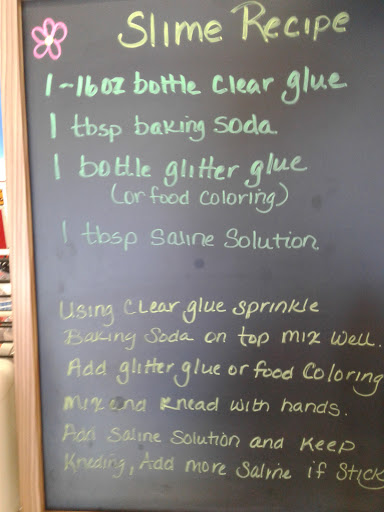 Slime Recipe
1-16oz bottle clear glue
1 tbsp baking soda
1 bottle glitter glue
(or food coloring)
1 tbsp saline solution
Using clear glue sprinkle
Baking Soda on top mix well.
Add glitter glue or food coloring
mix and knead with hands.
Add saline solution and keep
Kneding, Add more saline if stick